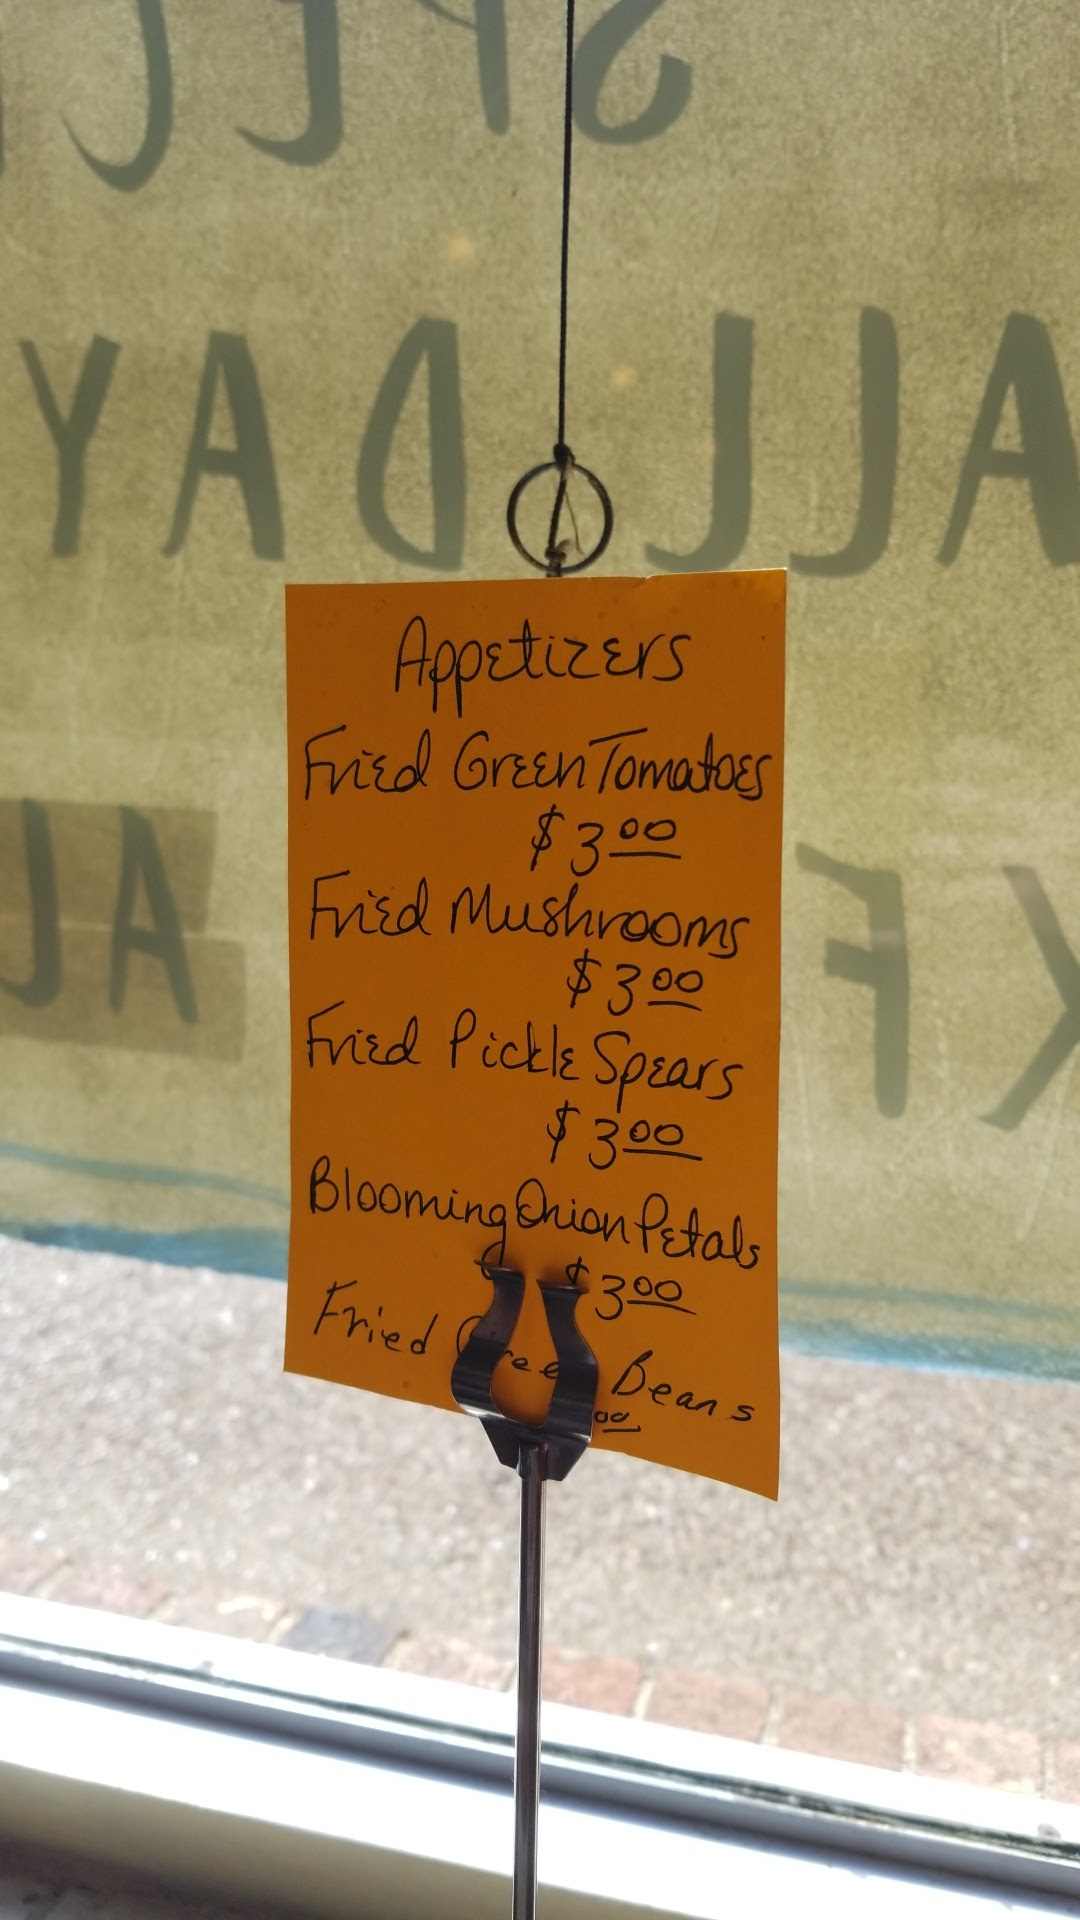 SPEC
ALL DAY
KF
AL
Appetizers
Fried Green Tomatoes
$3.00
Fried Mushrooms
$3.00
Fried Pickle Spears
$3.00
Blooming Onion Petals
$3.00
Fried Green Beans
00